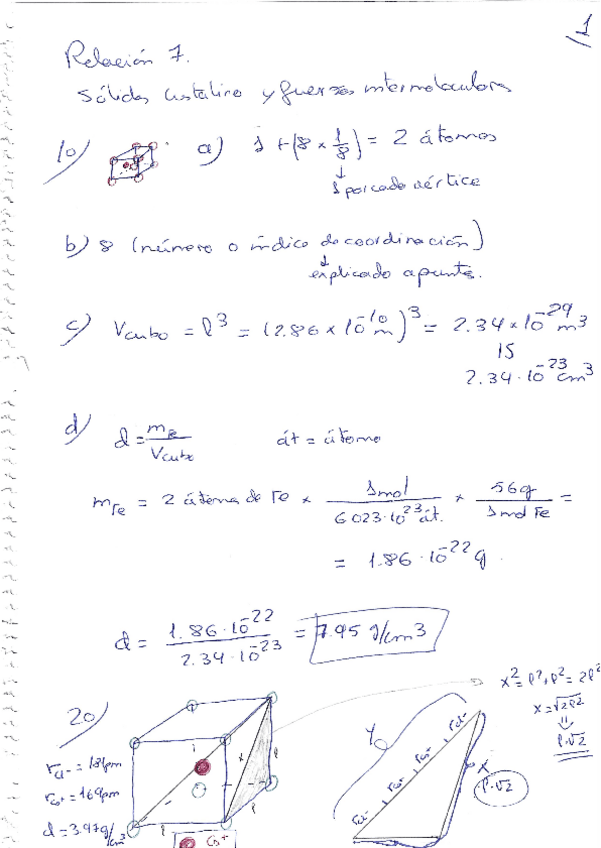 1
Relación 7.
Sólidos cristalino y fuerzas intermoleculares
1º) a) 1 + (8 × 1/8) = 2 átomos
↓
1 por cada vértice
b) 8 (número o índice de coordinación)
↓
explicado apuntes.
c) Vcubo = l³ = (2.86 × 10⁻¹⁰ m)³ = 2.34 × 10⁻²⁹ m³
15
2.34 · 10⁻²³ cm³
d) d = mFe / Vcubo át = átomo
mFe = 2 átomos de Fe × 1mol / 6 023·10²³ át. × 56g / 1mol Fe =
= 1.86 · 10⁻²² g.
d = 1.86 · 10⁻²² / 2.34 · 10⁻²³ = 7.95 g/cm³
x² = l² + l² = 2l²
x = √2l²
⇓
l·√2
2º)
rCl⁻ = 181pm
rCs⁺ = 169pm
d = 3.97g/cm³
l
x
l
l
Cs⁺
y
rCl⁻
rCs⁺
rCs⁺
rCl⁻
x
l·√2